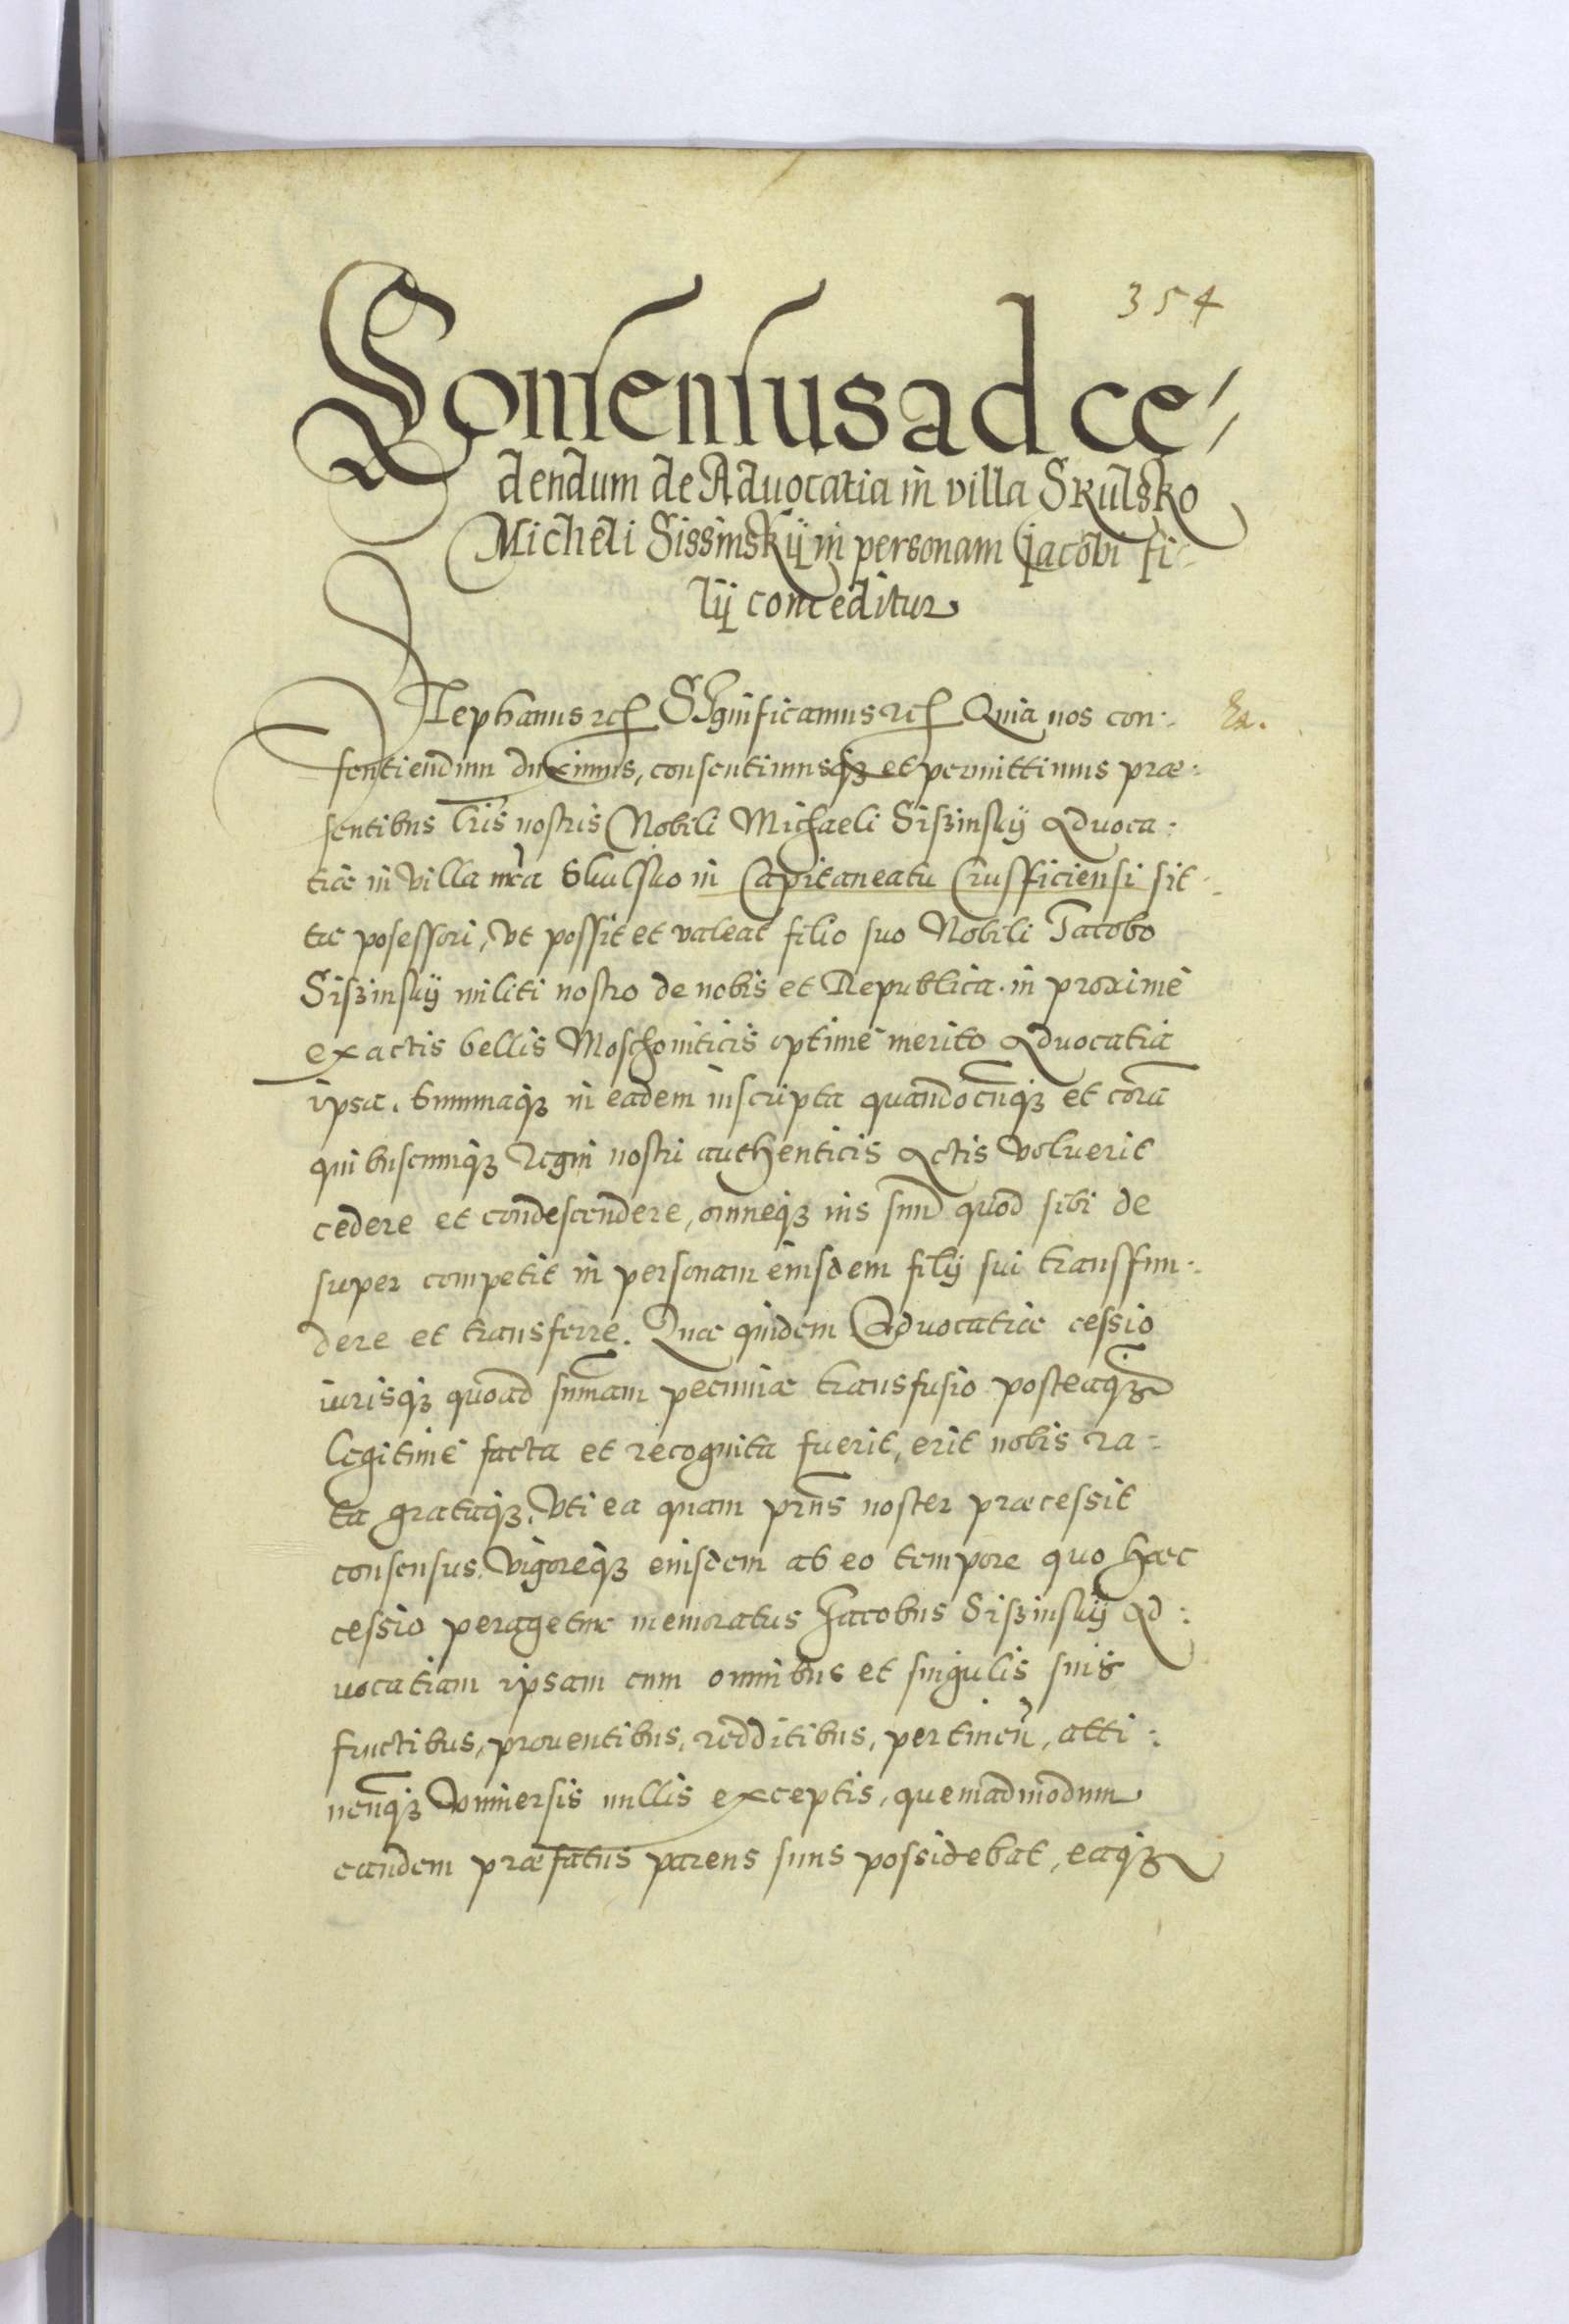 354
Consensus ad ce-
dendum de Advocatia in villa Skulsko
Micheli Sissinskÿ in personam Jacobi fi-
lÿ conceditur
Stephanus etc Significamus etc Quia nos con-
sentiendum duximus, consentimusq3 et permittimus præ-
sentibus lris nostris Nobili Michaeli Siszinskÿ Advoca-
tiæ in villa nra Skulsko in Capitaneatu Crusficiensi sit-
tæ posessori, vt possit et valeat filio suo Nobili Jacobo
Siszinskÿ militi nostro de nobis et Republica in proximè
exactis bellis Moschoviticis optimè merito Advocatia
ipsa, summaq3 in eadem inscripta quandocunq3 et cora
quibuscunq3 Regni nostri authenticis Actis voluerit
cedere et condescendere, omneq3 ius suu quod sibi de
super competit in personam eiusdem filÿ sui transfun-
dere et transferre. Quæ quidem Advocatiæ cessio
iurisq3 quoad summam pecuniæ transfusio posteaq3
legitimè facta et recognita fuerit, erit nobis ra-
ta grataq3, vti ea quam prns noster præcessit
consensus. Vigoreq3 eiusdem ab eo tempore quo hæc
cessio peragetur memoratus Jacobus Siszinskÿ Ad-
vocatiam ipsam cum omnibus et singulis suis
fructibus, prouentibus, redditibus, pertinen, atti-
nenq3 vniuersis nullis exceptis, quemadmodum
eandem præfatus parens suus possidebat, eaq3